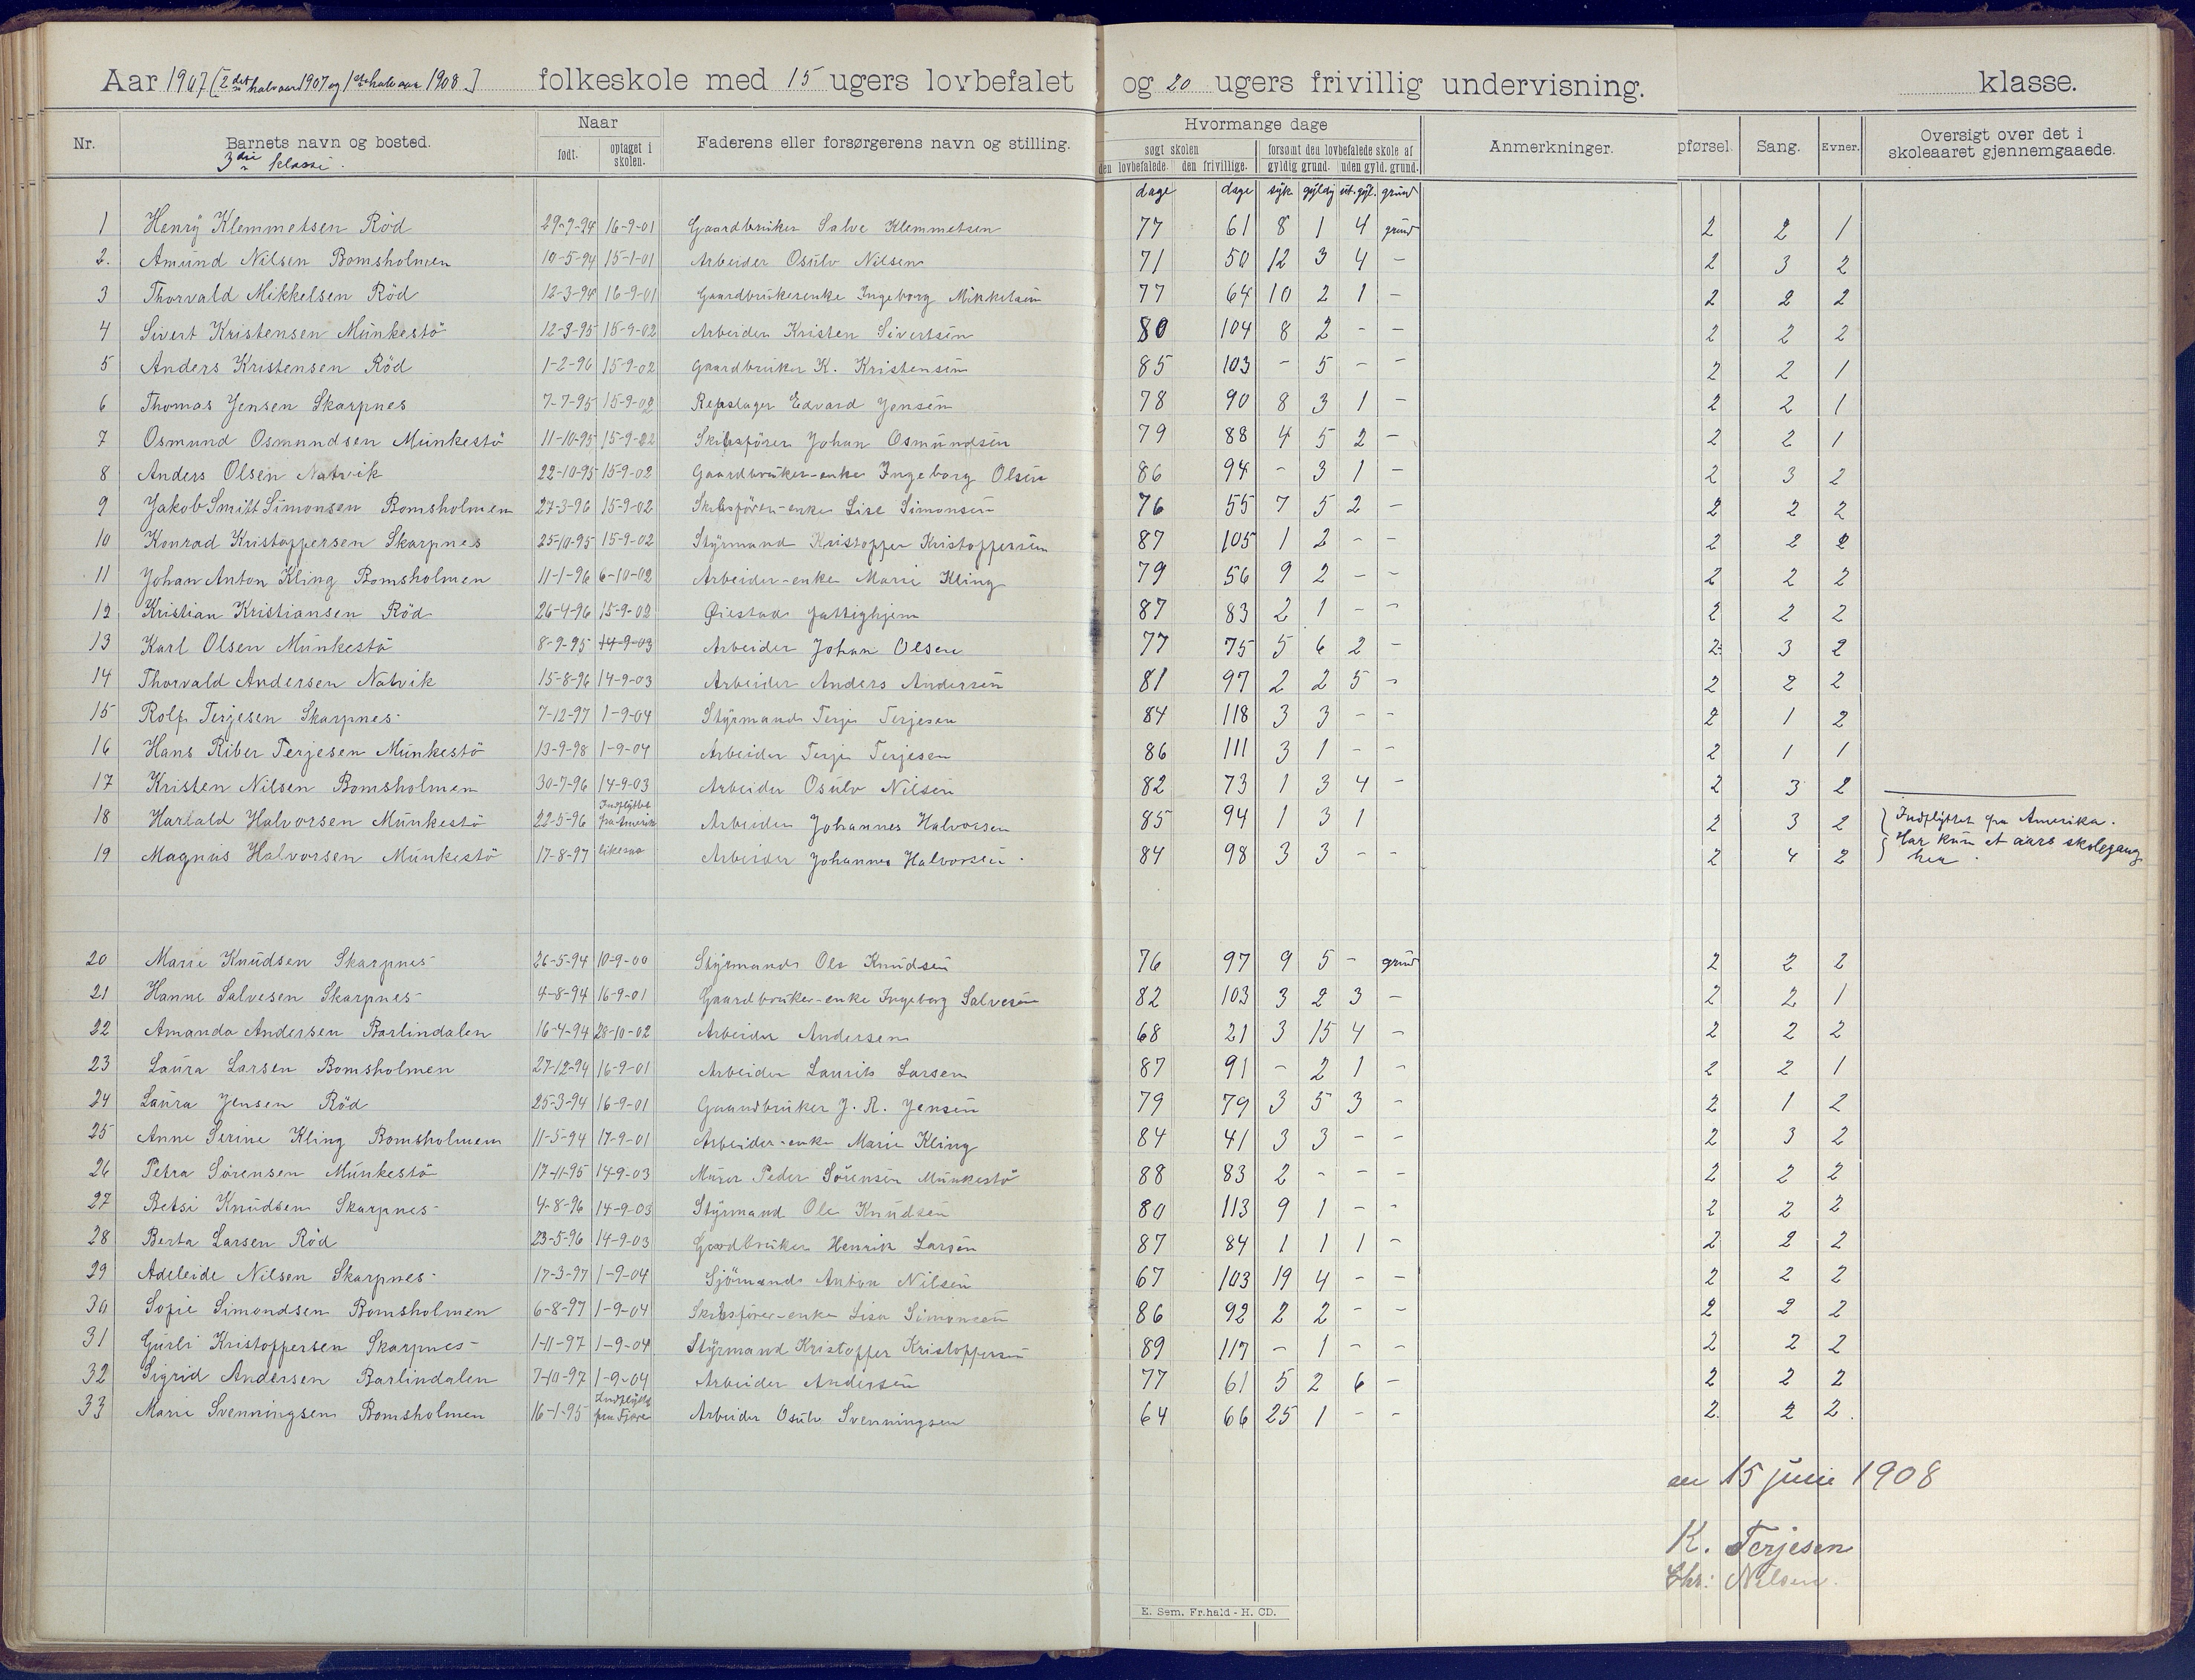 Aar 1907 [2det halvaar 1907 og 1ste halvaar 1908] folkeskole med 15 ugers lovbefalet og 20 ugers frivillig undervisning. klasse.
Nr. Barnets navn og bosted. Naar født. optaget i skolen. Faderens eller forsørgerens navn og stilling. Hvormange dage søgt skolen den lovbefalede. den frivillige. forsømt den lovbefalede skole af gyldig grund. uden gyld. grund. Anmerkninger. pførsel. Sang. Evner. Oversigt over det i skoleaaret gjennemgaaede.
3die klasse.
dage dage syk. gyldig ut. gyl. grund
1 Henry Klemmetsen Röd 29-9-94 16-9-01 Gaardbruker Salve Klemmetsen 77 61 8 1 4 grund 2 2 1
2. Amund Nilsen Bomsholmen 10-5-94 15-1-01 Arbeider Osulv Nilsen 71 50 12 3 4 - 2 3 2
3 Thorvald Mikkelsen Röd 12-3-94 16-9-01 Gaardbrukerenke Ingeborg Mikkelsen 77 64 10 2 1 - 2 2 2
4 Sivert Kristensen Munkestö 12-3-95 15-9-02 Arbeider Kristen Sivertsen 80 104 8 2 - - 2 2 2
5 Anders Kristensen Röd 1-2-96 15-9-02 Gaardbruker K. Kristensen 85 103 - 5 - - 2 2 1
6 Thomas Jensen Skarpnes 7-7-95 15-9-02 Repslager Edvard Jensen 78 90 8 3 1 - 2 2 1
7 Osmund Osmundsen Munkestö 11-10-95 15-9-02 Skibsförer Johan Osmundsen 79 88 4 5 2 - 2 2 1
8 Anders Olsen Natvik 22-10-95 15-9-02 Gaardbruker-enke Ingeborg Olsen 86 94 - 3 1 - 2 3 2
9 Jakob Smitt Simonsen Bomsholmen 27-3-96 15-9-02 Skibsförer-enke Lise Simonsen 76 55 7 5 2 - 2 2 2
10 Konrad Kristoffersen Skarpnes 25-10-95 15-9-02 Styrmand Kristoffer Kristoffersen 87 105 1 2 - - 2 2 2
11 Johan Anton Kling Bomsholmen 11-1-96 6-10-02 Arbeider-enke Marie Kling 79 56 9 2 - - 2 2 2
12 Kristian Kristiansen Röd 26-4-96 15-9-02 Øiestad fattighjem 87 83 2 1 - - 2 2 2
13 Karl Olsen Munkestö 8-9-95 14-9-03 Arbeider Johan Olsen 77 75 5 6 2 - 2 3 2
14 Thorvald Andersen Natvik 15-8-96 14-9-03 Arbeider Anders Andersen 81 97 2 2 5 - 2 2 2
15 Rolf Terjesen Skarpnes 7-12-97 1-9-04 Styrmand Terje Terjesen 84 118 3 3 - - 2 1 2
16 Hans Riber Terjesen Munkestö 13-9-98 1-9-04 Arbeider Terje Terjesen 86 111 3 1 - - 2 1 1
17 Kristen Nilsen Bomsholmen 30-7-96 14-9-03 Arbeider Osulv Nilsen 82 73 1 3 4 - 2 3 2
18 Harald Halvorsen Munkestö 22-5-96 Indflyttet fra Amerik Arbeider Johannes Halvorsen 85 94 1 3 1 2 3 2 Indflyttet fra Amerika.
19 Magnus Halvorsen Munkestö 17-8-97 likesaa Arbeider Johannes Halvorsen. 84 98 3 3 - - 2 4 2 Har kun et aars skolegang her.
20 Marie Knudsen Skarpnes 26-5-94 10-9-00 Styrmand Ole Knudsen 76 97 9 5 - grund 2 2 2
21 Hanne Salvesen Skarpnes 4-8-94 16-9-01 Gaardbruker-enke Ingeborg Salvesen 82 103 3 2 3 - 2 2 1
22 Amanda Andersen Barlindalen 16-4-94 28-10-02 Arbeider Andersen 68 21 3 15 4 - 2 2 2
23 Laura Larsen Bomsholmen 27-12-94 16-9-01 Arbeider Laurits Larsen 87 91 - 2 1 - 2 2 1
24 Laura Jensen Röd 25-3-94 16-9-01 Gaardbruker J. R. Jensen 79 79 3 5 3 - 2 1 2
25 Anne Serine Kling Bomsholmen 11-5-94 17-9-01 Arbeider-enke Marie Kling 84 41 3 3 - - 2 3 2
26 Petra Sörensen Munkestö 17-11-95 14-9-03 Murer Peder Sörensen Munkestö 88 83 2 - - - 2 2 2
27 Betsi Knudsen Skarpnes 4-8-96 14-9-03 Styrmand Ole Knudsen 80 113 9 1 - - 2 2 2
28 Berta Larsen Röd 23-5-96 14-9-03 Gaardbruker Henrik Larsen 87 84 1 1 1 - 2 2 2
29 Adeleide Nilsen Skarpnes 17-3-97 1-9-04 Sjömand Anton Nilsen 67 103 19 4 - - 2 2 2
30 Sofie Simondsen Bomsholmen 6-8-97 1-9-04 Skibsförer-enke Lisa Simonsen 86 92 2 2 - - 2 2 2
31 Gurli Kristoffersen Skarpnes 1-11-97 1-9-04 Styrmand Kristoffer Kristoffersen 89 117 - 1 - - 2 2 2
32 Sigrid Andersen Barlindalen 7-10-97 1-9-04 Arbeider Andersen 77 61 5 2 6 - 2 2 2
33 Marie Svenningsen Bomsholmen 16-1-95 Indflytt fra Fjære Arbeider Osulv Svenningsen 64 66 25 1 - - 2. 2 2.
en 15 juni 1908
K. Terjesen
Chr: Nilsen.
E. Sem. Fr.hald - H. CD.